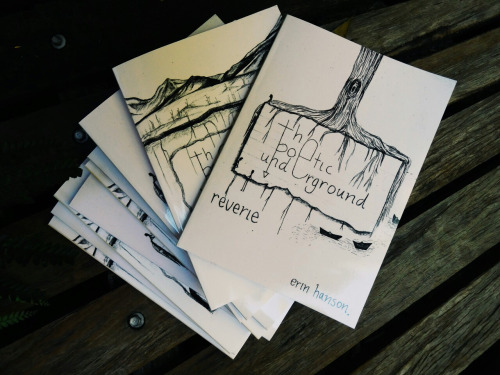 the
poetic
underground
reverie
erin hanson.
th